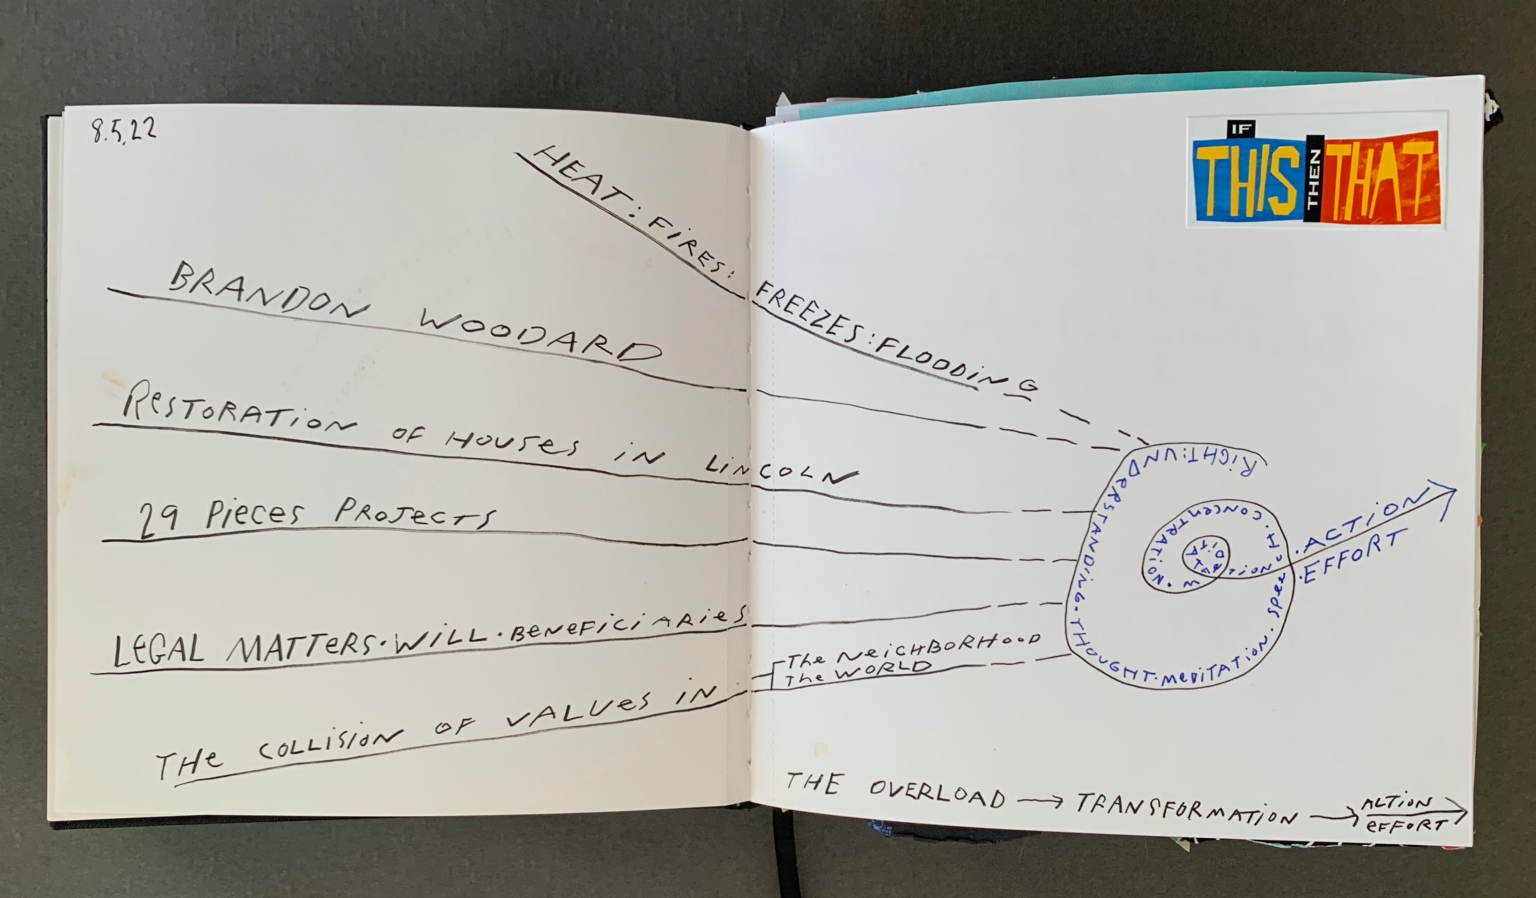 8.5.22
IF
THIS THEN THAT
HEAT: FIRES: FREEZES: FLOODING
BRANDON WOODARD
RESTORATION OF HOUSES IN LINCOLN
29 PIECES PROJECTS
LEGAL MATTERS · WILL · BENEFICIARIES
THE COLLISION OF VALUES IN
THE NEIGHBORHOOD
THE WORLD
RIGHT: UNDERSTANDING · THOUGHT · MEDITATION · SPEECH · CONCENTRATION · MEDITATION
· ACTION
· EFFORT
THE OVERLOAD → TRANSFORMATION →
ACTION
EFFORT